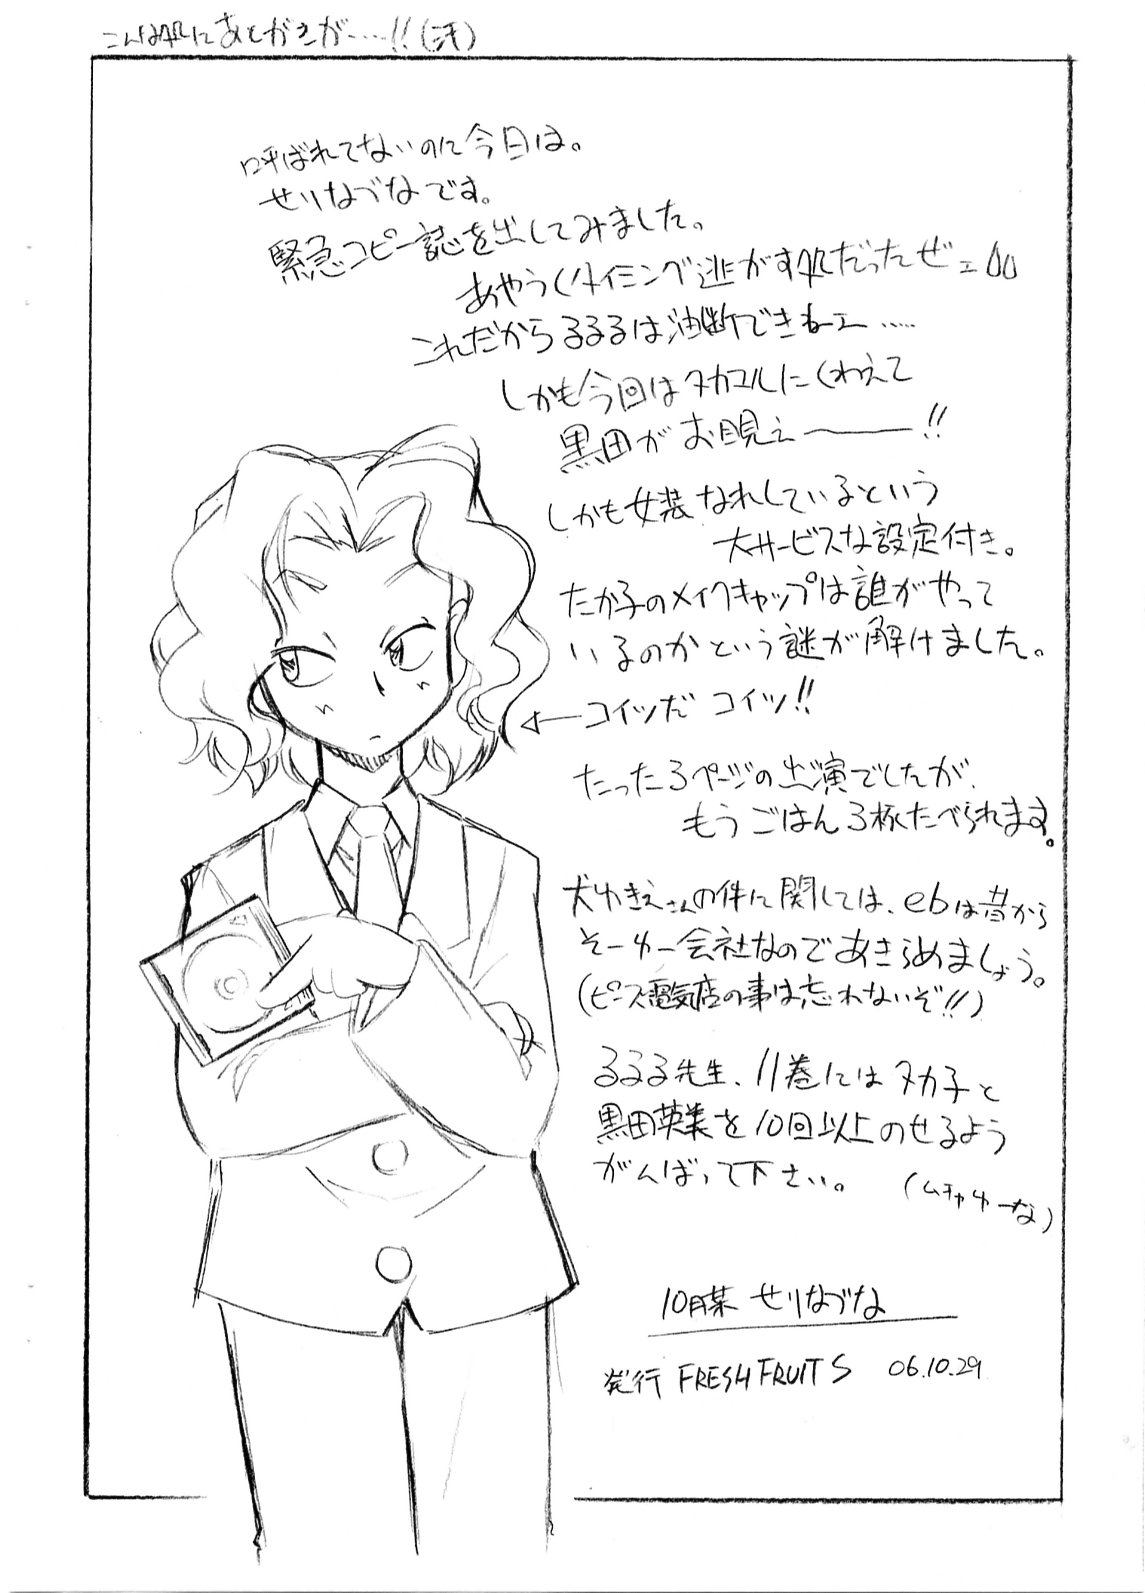 こんな処にあとがきが……!!(汗)
呼ばれてないのに今日は。
せりなづなです。
緊急コピー誌を出してみました。
あやうくタイミング逃がす処だったぜェ
これだからるるるは油断できねーェ……
しかも今回はタカコルにくわえて
黒田がお目見え―――!!
しかも女装なれしているという
大サービスな設定付き。
たか子のメイクキャップは誰がやって
いるのかという謎が解けました。
←コイツだ コイツ!!
たった3ページの出演でしたが、
もうごはん3杯たべられます。
犬ゆきえさんの件に関しては、ebは昔から
そーゆー会社なのであきらめましょう。
(ピース電気店の事は忘れないぞ!!)
るるる先生、11巻にはタカ子と
黒田英美を10回以上のせるよう
がんばって下さい。
(ムチャゆーな)
せりなづな
発行 FRESH FRUITS 06.10.29